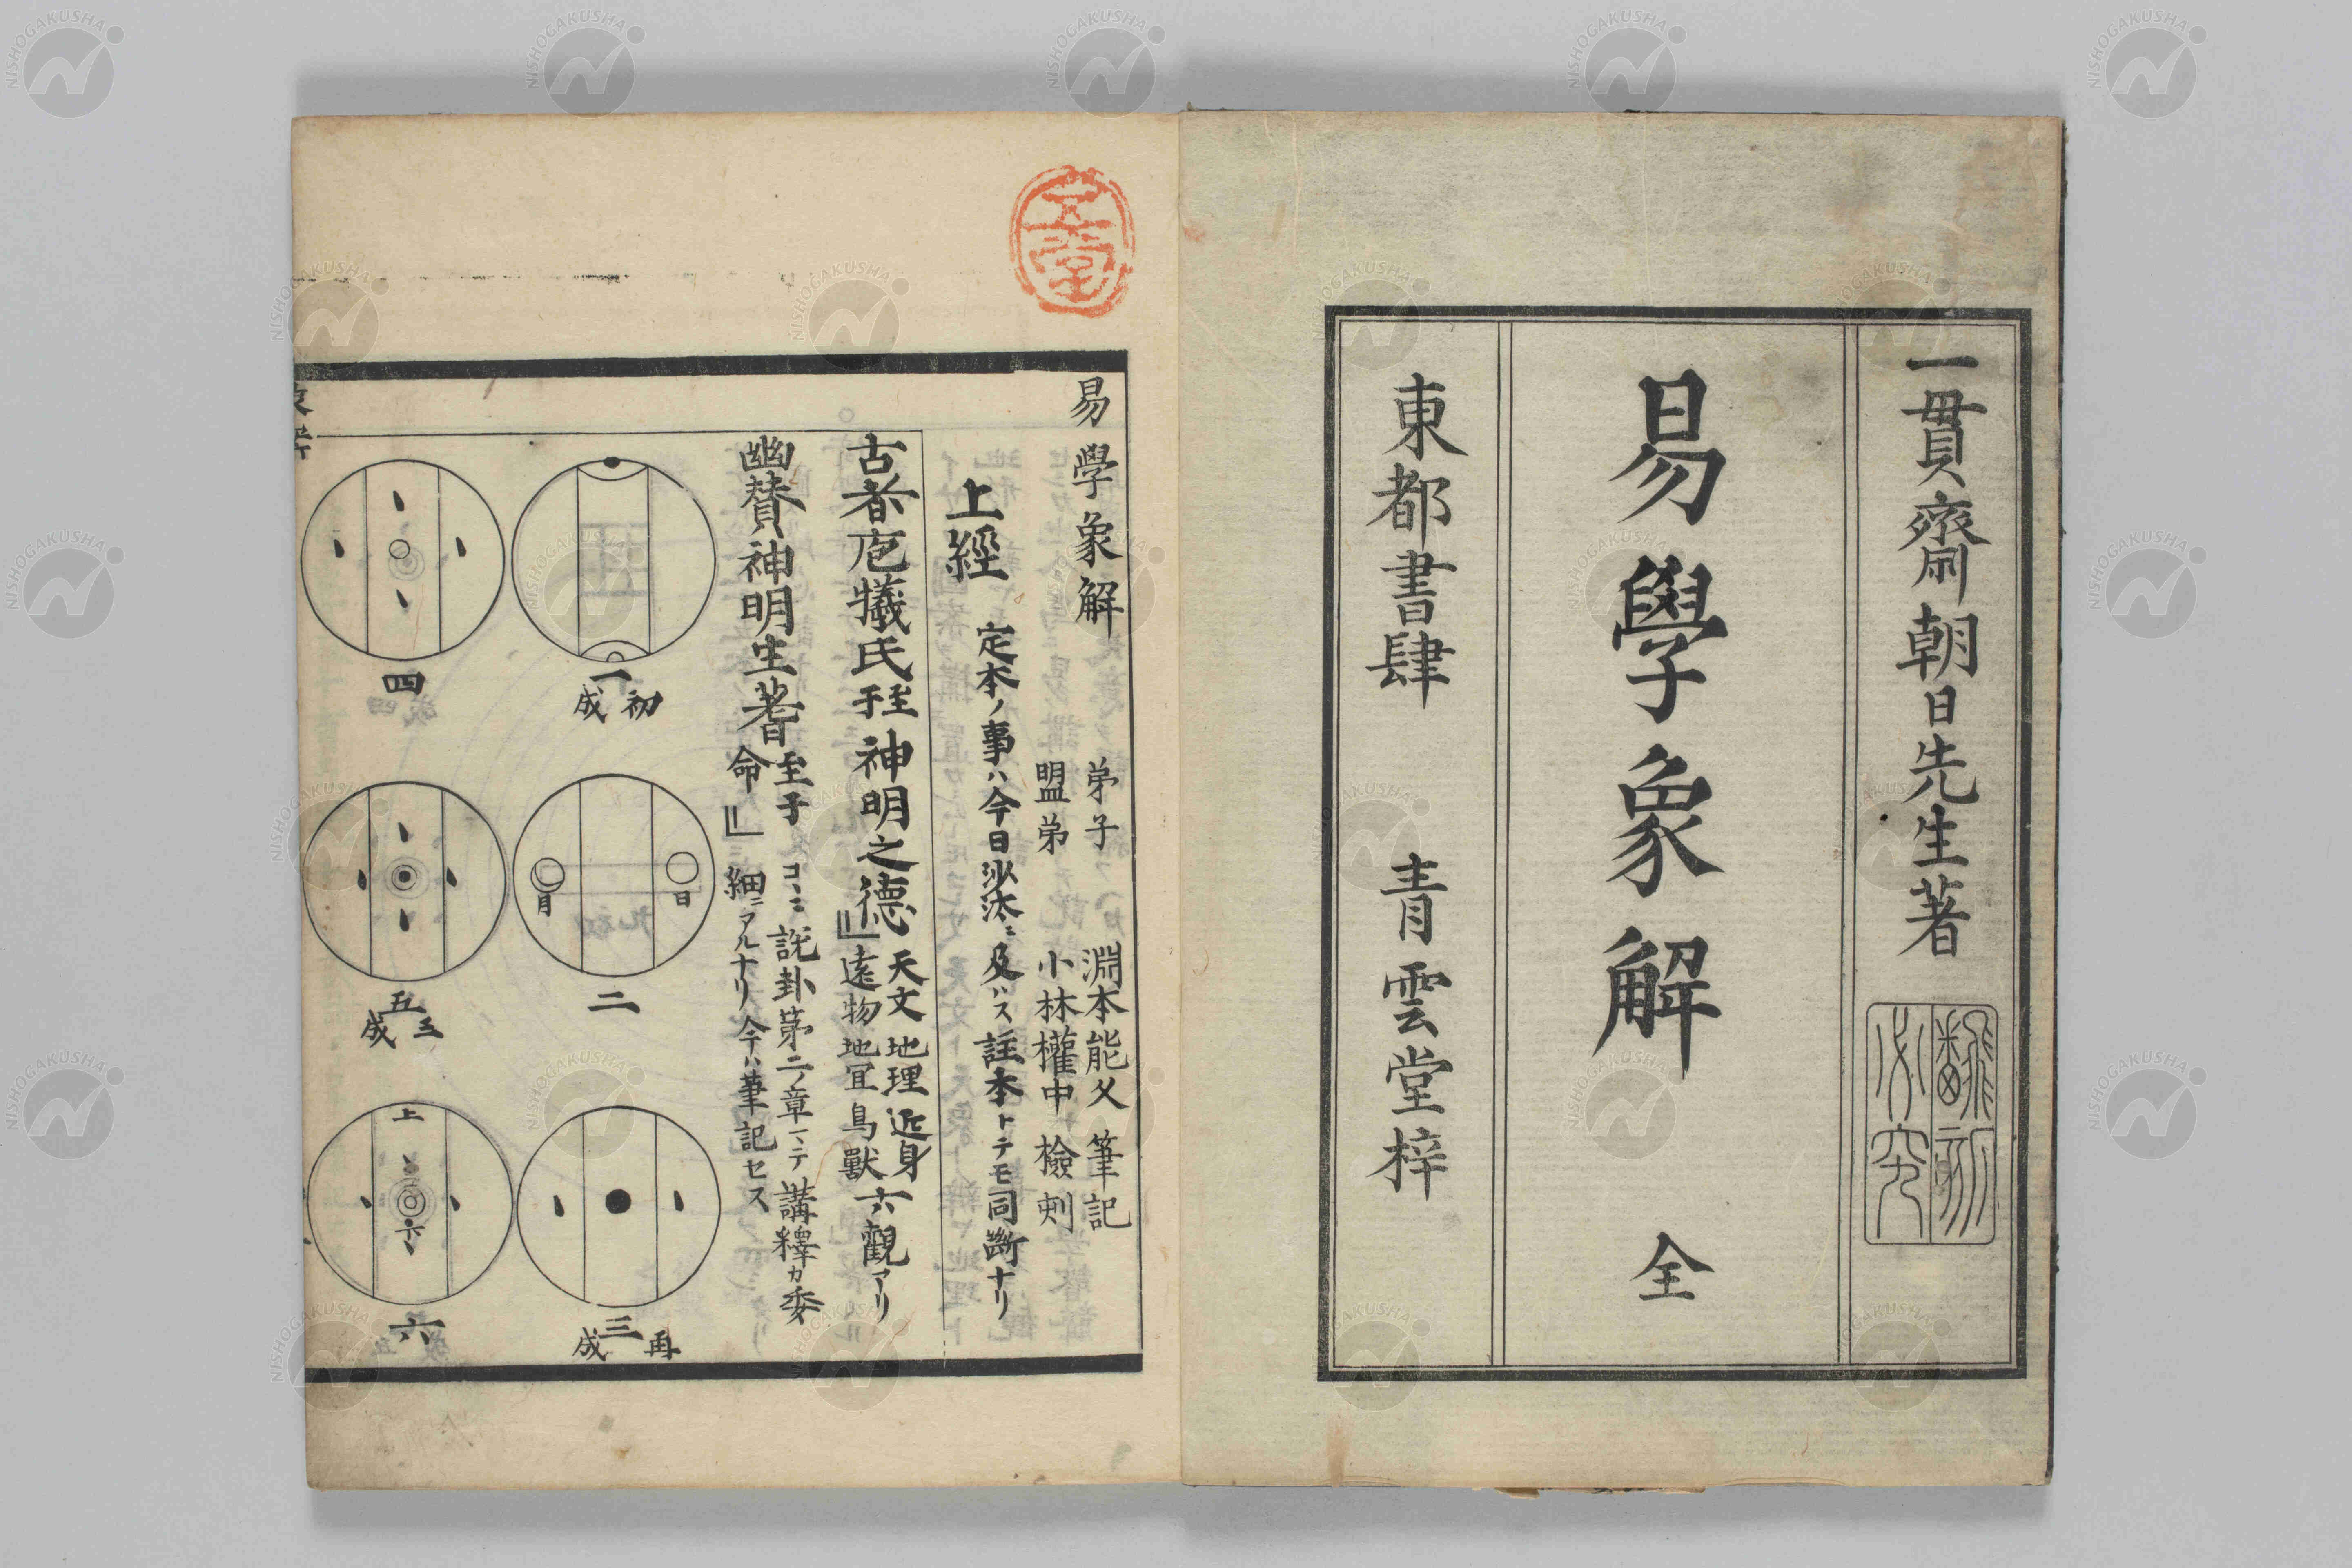 一貫齋朝日先生著
易學象解 全
東都書肆 青雲堂梓
易學象解
弟子 淵本能久 筆記
盟弟 小林權中 檢刻
上經
定本ノ事ハ今日沙汰ニ及ハス註本トテモ同斷ナリ
古者庖犠氏至于神明之德』
天文地理近身
遠物地宜鳥獸
六觀アリ
幽贊神明生蓍
至于
命』
コヽニ說卦第二ノ章ヽテ講釋カ委
細ニアルナリ今ハ筆記セス
一
初
成
二
日
月
三
再
成
四
五
三
成
上
六
六
NISHOGAKUSHA